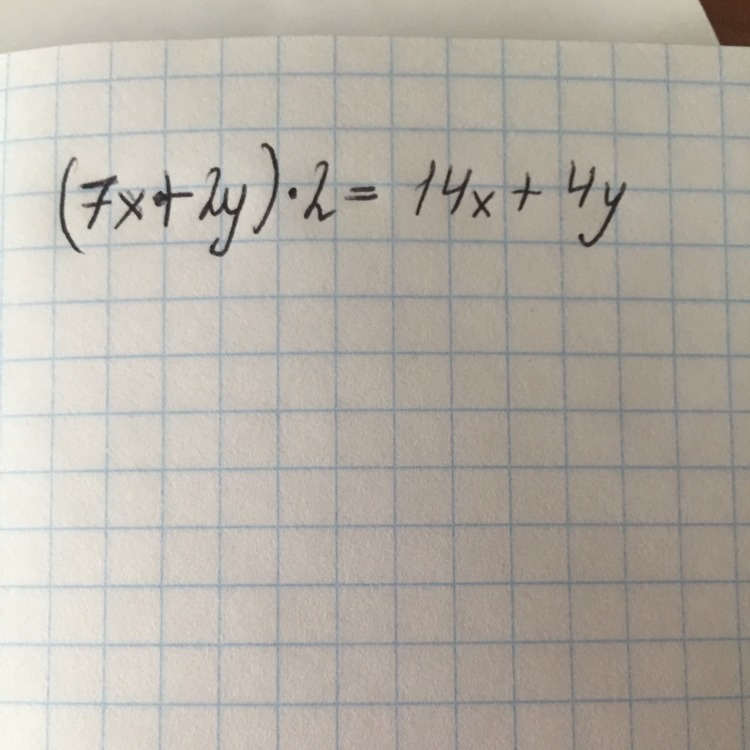 (7x+2y)·2= 14x+4y